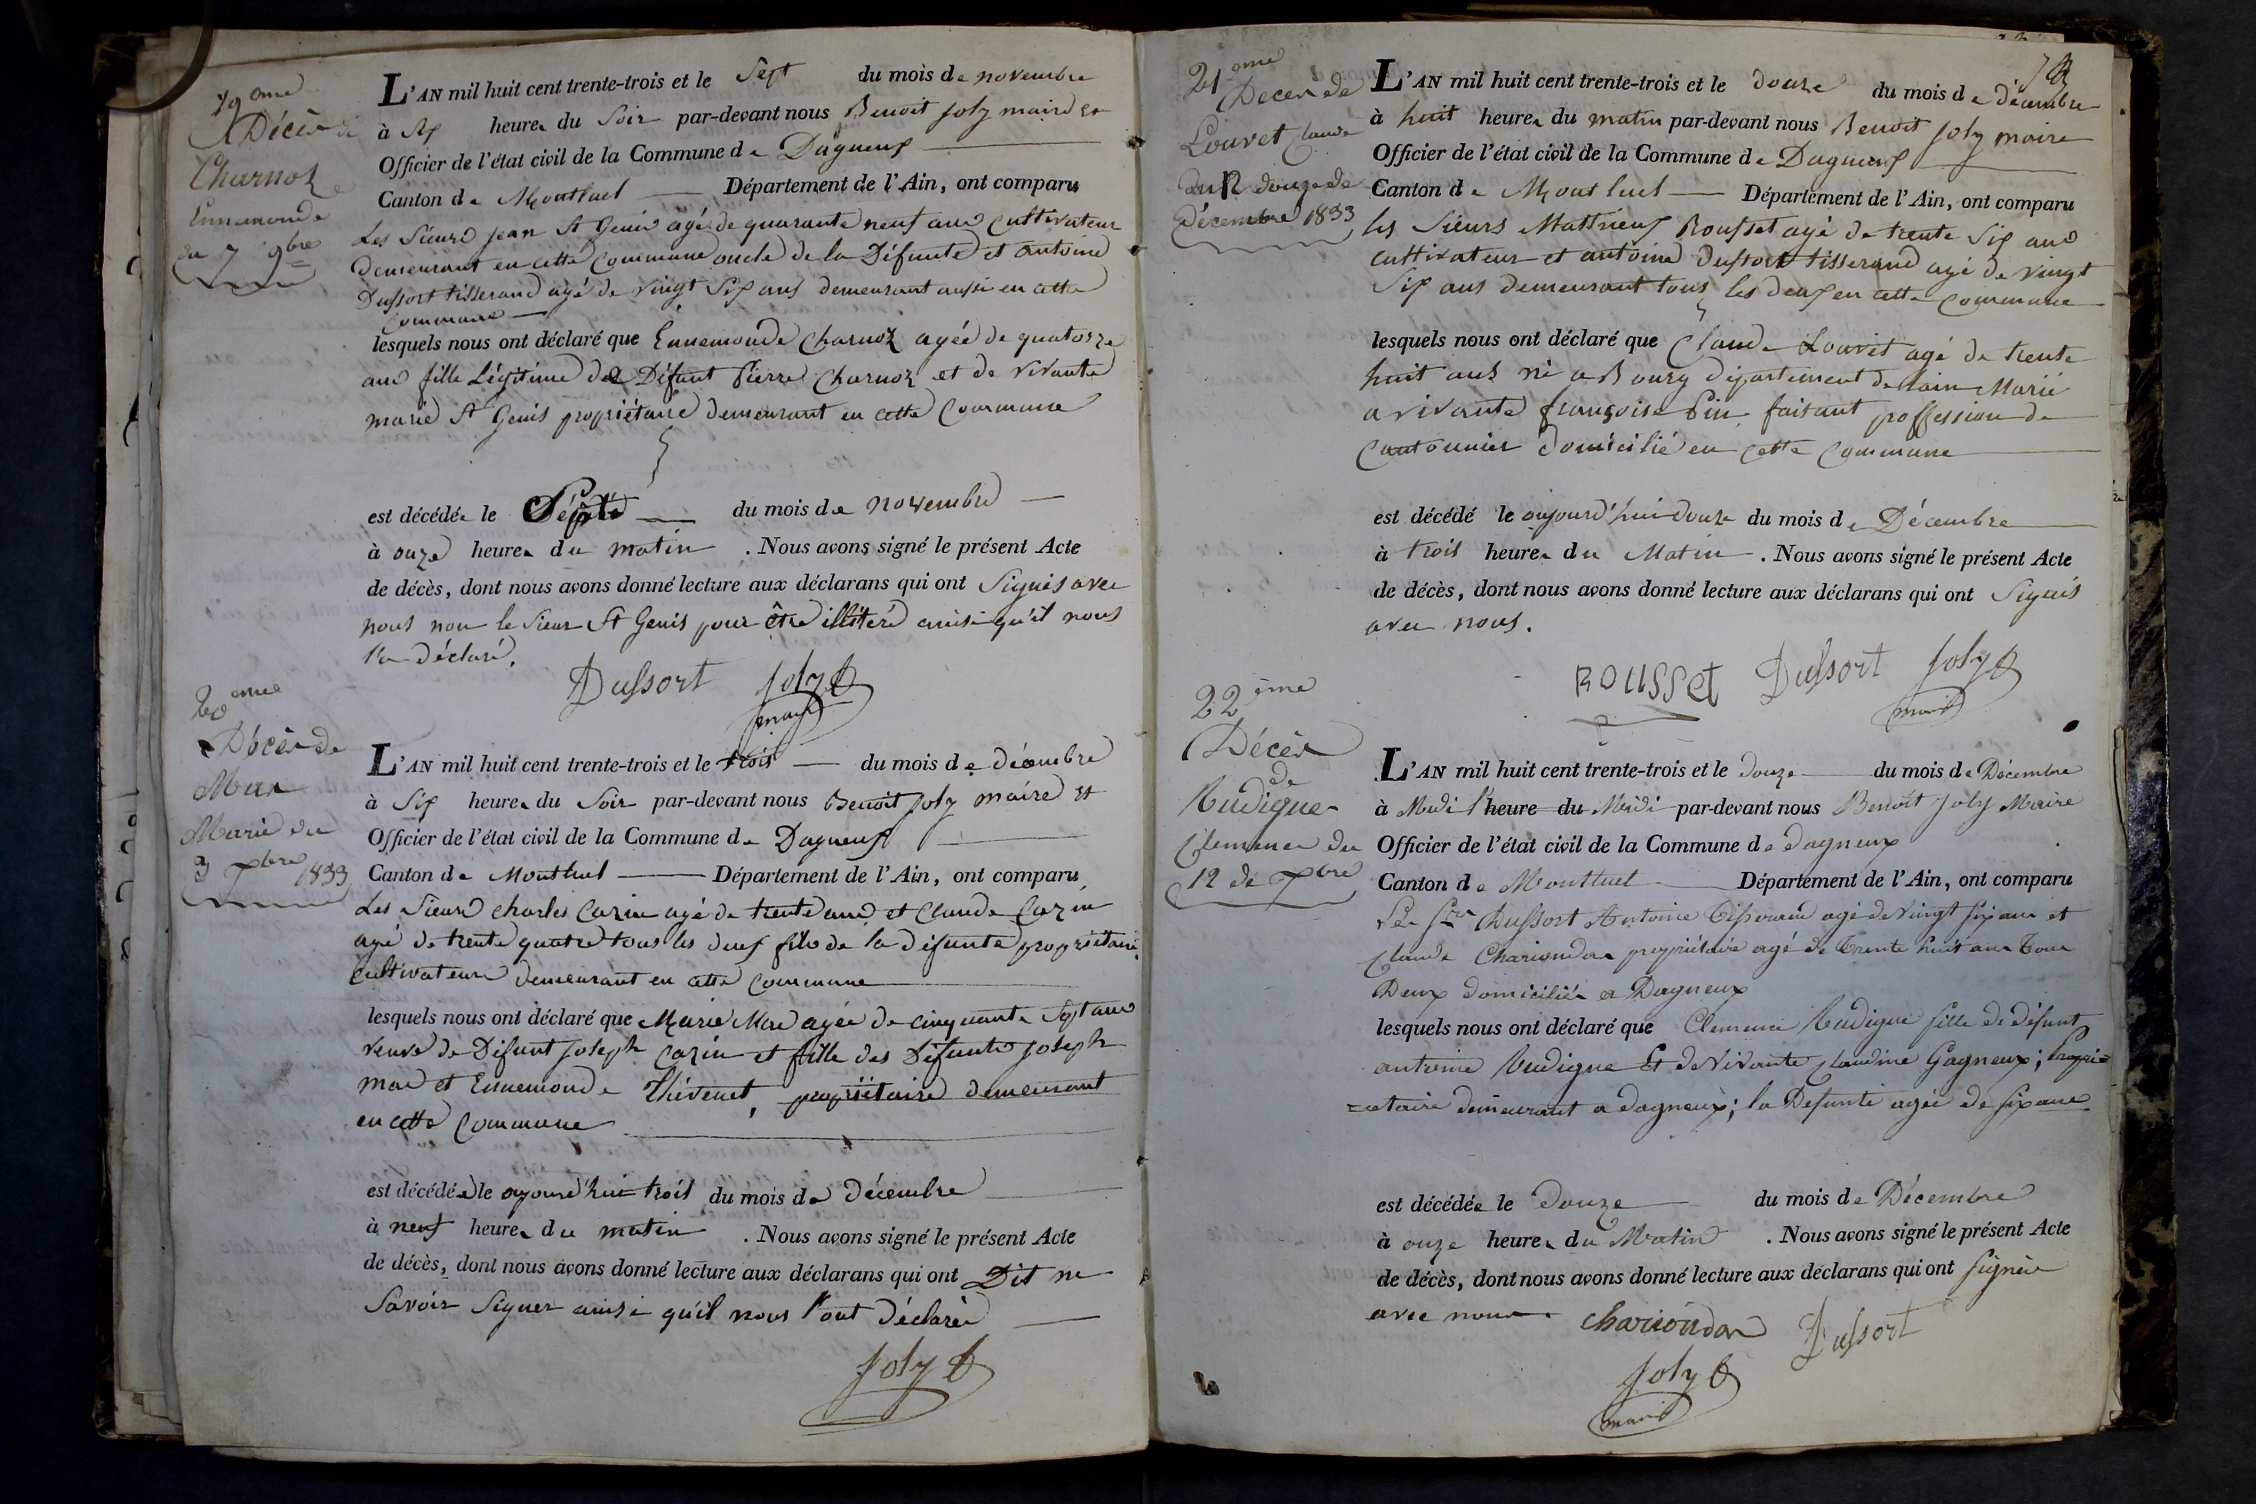 19eme
Décès de
Charnoz
Ennemonde
du 7 9bre
L'AN mil huit cent trente-trois et le Sept du mois de novembre
à six heures du Soir par-devant nous Benoit Joly maire et
Officier de l'état civil de la Commune de Dagneux
Canton de Montluel Département de l'Ain, ont comparu
Les Sieurs Jean St Genis agé de quarante neuf ans cultivateur
demeurant en cette commune oncle de la Défunte et antoine
Dussort tisserand agé de vingt Six ans demeurant aussi en cette
Commune
lesquels nous ont déclaré que Ennemonde Charnoz agée de quatorze
ans fille Légitime de Défunt Pierre Charnoz et de vivante
marie St Genis propriétaire demeurant en cette Commune
est décédée le Sept du mois de novembre
à onze heures du matin . Nous avons signé le présent Acte
de décès, dont nous avons donné lecture aux déclarans qui ont Signés avec
nous non le Sieur St Genis pour être illitéré ainsi qu'il nous
l'a déclaré.
Dussort Joly B
maire
20eme
Décès de
Mar
Marie du
3 xbre 1833
L'AN mil huit cent trente-trois et le trois du mois de décembre
à Six heures du Soir par-devant nous Benoit Joly maire et
Officier de l'état civil de la Commune de Dagneux
Canton de Montluel Département de l'Ain, ont comparu
Les Sieurs charles Cazin agé de trente ans et Claude Cazin
agé de trente quatre tous les deux fils de la défunte propriétaire
cultivateurs demeurant en cette commune
lesquels nous ont déclaré que Marie Mar agée de cinquante Sept ans
veuve de Défunt Joseph Cazin et fille des Défunts Joseph
mar et Ennemonde Thévenet, propriétaire demeurant
en cette Commune
est décédée le aujourd'hui trois du mois de décembre
à neuf heures du matin . Nous avons signé le présent Acte
de décès, dont nous avons donné lecture aux déclarans qui ont Dit ne
Savoir Signer ainsi qu'il nous l'ont déclaré
Joly B
21eme
Décès de
Louvet Claude
du 12 douze de
décembre 1833
L'AN mil huit cent trente-trois et le douze du mois de décembre
à huit heures du matin par-devant nous Benoit Joly maire
Officier de l'état civil de la Commune de Dagneux
Canton de Montluel Département de l'Ain, ont comparu
les Sieurs Matthieux Rousset agé de trente Six ans
cultivateur et antoine Dussort tisserand agé de vingt
Six ans demeurant tous les deux en cette Commune
lesquels nous ont déclaré que Claude Louvet agé de trente
huit ans né a Bourg département de lain Marié
a vivante françoise Pin faisant proffession de
Cantonnier domicilié en cette Commune
est décédé le aujourd'hui douze du mois de Décembre
à trois heures du Matin . Nous avons signé le présent Acte
de décès, dont nous avons donné lecture aux déclarans qui ont Signés
avec nous.
ROUSSEt Dussort Joly B
maire
22ème
Décès
de
Rudigue
Clemence du
12 de xbre
L'AN mil huit cent trente-trois et le douze du mois de Décembre
à Midi heure du Midi par-devant nous Benoît Joly Maire
Officier de l'état civil de la Commune de dagneux
Canton de Montluel Département de l'Ain, ont comparu
Les Srs Dussort Antoine Tisserand agé de vingt six ans et
Claude Chariondon propriétaire agé de Trente huit ans Tous
Deux domiciliés a Dagneux
lesquels nous ont déclaré que Clemence Rudigue fille de défunt
antoine Rudigue Et de Vivante Claudine Gagneux; Propri=
=etaire demeurant a dagneux; la Défunte agée de six ans
est décédée le douze du mois de Décembre
à onze heures du Matin . Nous avons signé le présent Acte
de décès, dont nous avons donné lecture aux déclarans qui ont signés
avec nous. chariondon Dussort
Joly B
maire